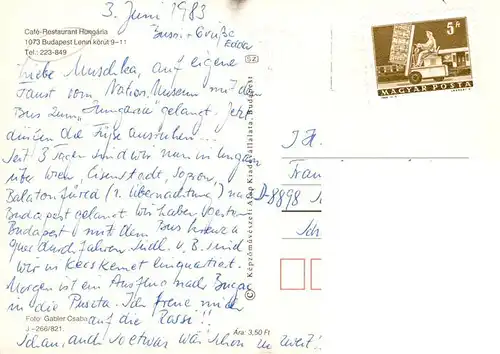 3. Juni 1983
Bussi + Grüße
Café-Restaurant Hungária
1073 Budapest Lenin körút 9-11
Tel.: 223-849
Liebe Muschka, auf eigene
Faust vom Nation. Museum mit dem
Bus zum "Hungaria" gelangt. Jetzt
dürfen die Füße ausruhen...
Seit 3 Tagen sind wir nun in Ungarn
über Wien, Eisenstadt, Sopron,
Balatonfüred (1. Übernachtung) nach
Budapest gelangt. Wir haben gestern
Budapest mit dem Bus kreuz u
quer durchfahren. Südl. v. B. sind
wir in Kecskemet einquartiert.
Morgen ist ein Ausflug nach Bugac
in die Puszta. Ich freue mich
auf die Rassi!!
Schau, auch so etwas wär schon zu zweit!
Foto: Gabler Csaba
J.-266/821.
Ára: 3,50 Ft
© Képzőművészeti Alap Kiadóvállalata, Budapest
SZ
5 Ft
MAGYAR POSTA
D-8898